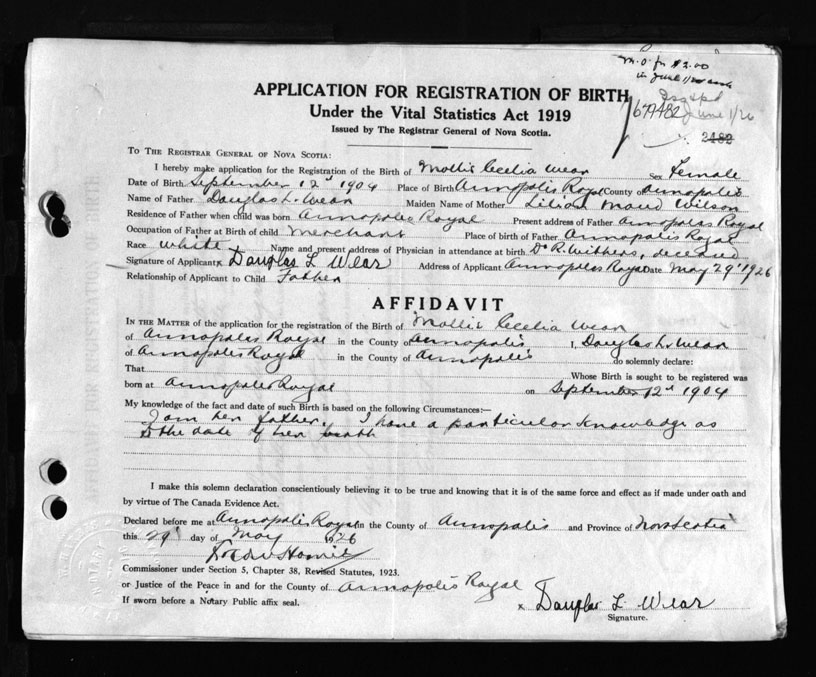 M.O. for $2.00
APPLICATION FOR REGISTRATION OF BIRTH
Under the Vital Statistics Act 1919
June 1/26
Issued by The Registrar General of Nova Scotia.
2482
TO THE REGISTRAR GENERAL OF NOVA SCOTIA:
I hereby make application for the Registration of the Birth of Mollie Cecelia Wear sex Female
Date of Birth September 12th 1904 Place of Birth Annapolis Royal County of Annapolis
Name of Father Douglas L. Wear Maiden Name of Mother Lilian Maud Wilson
Residence of Father when child was born Annapolis Royal Present address of Father Annapolis Royal
Occupation of Father at Birth of child Merchant Place of birth of Father Annapolis Royal
Race White Name and present address of Physician in attendance at birth Dr R. Withers, deceased
Signature of Applicant x Douglas L Wear Address of Applicant Annapolis Royal Date May 29th 1926
Relationship of Applicant to Child Father
AFFIDAVIT
IN THE MATTER of the application for the registration of the Birth of Mollie Cecelia Wear
of Annapolis Royal in the County of Annapolis I, Douglas L. Wear
of Annapolis Royal in the County of Annapolis do solemnly declare:
That Whose Birth is sought to be registered was
born at Annapolis Royal on September 12th 1904
My knowledge of the fact and date of such Birth is based on the following Circumstances:—
I am her father. I have a particular knowledge as
to the date of her birth
I make this solemn declaration conscientiously believing it to be true and knowing that it is of the same force and effect as if made under oath and
by virtue of The Canada Evidence Act.
Declared before me at Annapolis Royal in the County of Annapolis and Province of Nova Scotia
this 29th day of May 1926
Commissioner under Section 5, Chapter 38, Revised Statutes, 1923.
or Justice of the Peace in and for the County of Annapolis Royal
If sworn before a Notary Public affix seal.
x Douglas L. Wear
Signature.